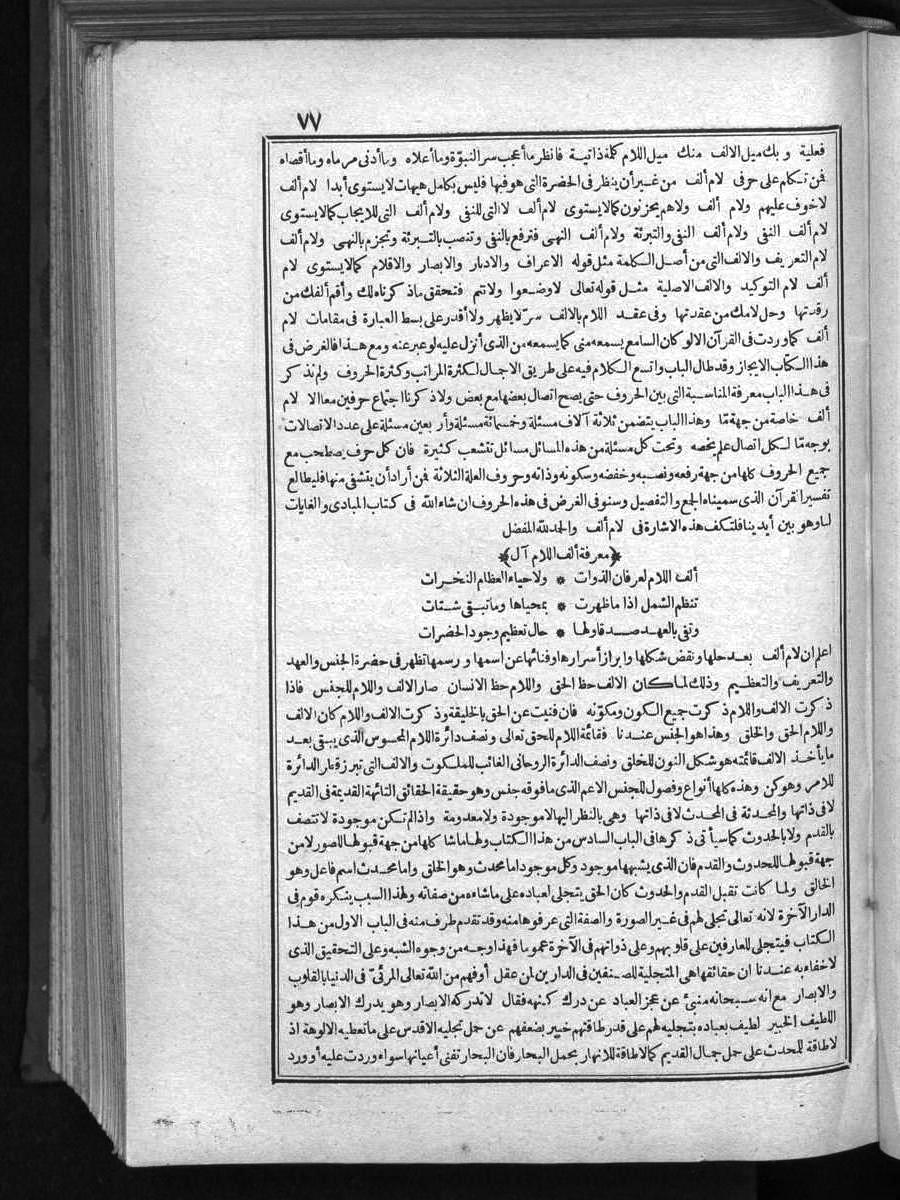 ٧٧
فعلية وبك ميل الالف منك ميل اللام كلمة ذاتية فانظر ما أعجب سر النبوّة وما أعلاه وما أدنى مرماه وما أقصاه
فمن تكلم على حرفى لام ألف من غير أن ينظر فى الحضرة التى هو فيها فليس بكامل هيهات لا يستوى أبدا لام ألف
لا خوف عليهم ولام ألف ولا هم يحزنون كما لا يستوى لام ألف لا التى للنفى ولام ألف التى للايجاب كما لا يستوى
لام ألف النفى ولام ألف النفى والتبرئة ولام ألف النهى فترفع بالنفى وتنصب بالتبرئة وتجزم بالنهى ولام ألف
لام التعريف والالف التى من أصل الكلمة مثل قوله الاعراف والادبار والابصار والاقلام كما لا يستوى لام
ألف لام التوكيد والالف الاصلية مثل قوله تعالى لاوضعوا ولانتم فتحقق ما ذكرناه لك وأقم ألفك من
رقدتها وحل لامك من عقدتها وفى عقد اللام بالالف سرّ لا يظهر ولا أقدر على بسط العبارة فى مقامات لام
ألف كما وردت فى القرآن الا لو كان السامع يسمعه منى كما يسمعه من الذى أنزل عليه لو عبر عنه ومع هذا فالغرض فى
هذا الكتاب الايجاز وقد طال الباب واتسع الكلام فيه على طريق الاجمال لكثرة المراتب وكثرة الحروف ولم نذكر
فى هذا الباب معرفة المناسبة التى بين الحروف حتى يصح اتصال بعضها مع بعض ولا ذكرنا اجتماع حرفين معا الا لام
ألف خاصة من جهة مّا وهذا الباب يتضمن ثلاثة آلاف مسئلة وخمسمائة مسئلة وأربعين مسئلة على عدد الاتصالات
بوجه مّا لكل اتصال علم يخصه وتحت كل مسئلة من هذه المسائل مسائل تتشعب كثيرة فان كل حرف يصطحب مع
جميع الحروف كلها من جهة رفعه ونصبه وخفضه وسكونه وذاته وحروف العلة الثلاثة فمن أراد أن يتشفى منها فليطالع
تفسير القرآن الذى سميناه الجمع والتفصيل وسنوفى الغرض فى هذه الحروف ان شاء الله فى كتاب المبادى والغايات
لنا وهو بين أيدينا فلتكف هذه الاشارة فى لام ألف والحمد لله المفضل
﴿معرفة ألف اللام آل﴾
ألف اللام لعرفان الذوات * ولاحياء العظام النخرات
تنظم الشمل اذا ما ظهرت * بمحياها وما تبقى شتات
وتفى بالعهد صدقا ولها * حال تعظيم وجود الحضرات
اعلم ان لام ألف بعد حلها ونقض شكلها وابراز أسرارها وفنائها عن اسمها ورسمها تظهر فى حضرة الجنس والعهد
والتعريف والتعظيم وذلك لما كان الالف حظ الحق واللام حظ الانسان صار الالف واللام للجنس فاذا
ذكرت الالف واللام ذكرت جميع الكون ومكوّنه فان فنيت عن الحق بالخليقة وذكرت الالف واللام كان الالف
واللام الحق والخلق وهذا هو الجنس عندنا فقائمة اللام للحق تعالى ونصف دائرة اللام المحسوس الذى يبقى بعد
ما يأخذ الالف قائمته هو شكل النون للخلق ونصف الدائرة الروحانى الغائب للملكوت والالف التى تبرز قطر الدائرة
للامر وهو كن وهذه كلها أنواع وفصول للجنس الاعم الذى ما فوقه جنس وهو حقيقة الحقائق التائهة القديمة فى القديم
لا فى ذاتها والمحدثة فى المحدث لا فى ذاتها وهى بالنظر اليها لا موجودة ولا معدومة واذا لم تكن موجودة لا تتصف
بالقدم ولا بالحدوث كما سيأتى ذكرها فى الباب السادس من هذا الكتاب ولها ما شاكلها من جهة قبولها للصور لا من
جهة قبولها للحدوث والقدم فان الذى يشبهها موجود وكل موجود اما محدث وهو الخلق واما محدث اسم فاعل وهو
الخالق ولما كانت تقبل القدم والحدوث كان الحق يتجلى لعباده على ما شاءه من صفاته ولهذا السبب ينكره قوم فى
الدار الآخرة لانه تعالى تجلى لهم فى غير الصورة والصفة التى عرفوها منه وقد تقدم طرف منه فى الباب الاول من هذا
الكتاب فيتجلى للعارفين على قلوبهم وعلى ذواتهم فى الآخرة عموما فهذا وجه من وجوه الشبه وعلى التحقيق الذى
لا خفاء به عندنا ان حقائقها هى المتجلية للصنفين فى الدارين لمن عقل أو فهم من الله تعالى المرئىّ فى الدنيا بالقلوب
والابصار مع انه سبحانه منبئ عن عجز العباد عن درك كنهه فقال لا تدركه الابصار وهو يدرك الابصار وهو
اللطيف الخبير لطيف بعباده بتجليه لهم على قدر طاقتهم خبير بضعفهم عن حمل تجليه الاقدس على ما تعطيه الالوهة اذ
لا طاقة للمحدث على حمل جمال القديم كما لا طاقة للانهار بحمل البحار فان البحار تفنى أعيانها سواء وردت عليه أو ورد